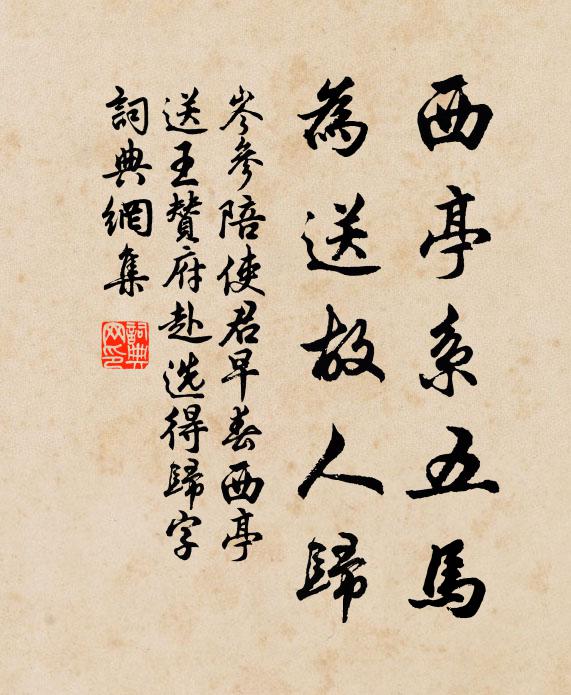 西亭系五馬
為送故人歸
岑參陪使君早春西亭
送王贊府赴選得歸字
詞典網集
詞典網印